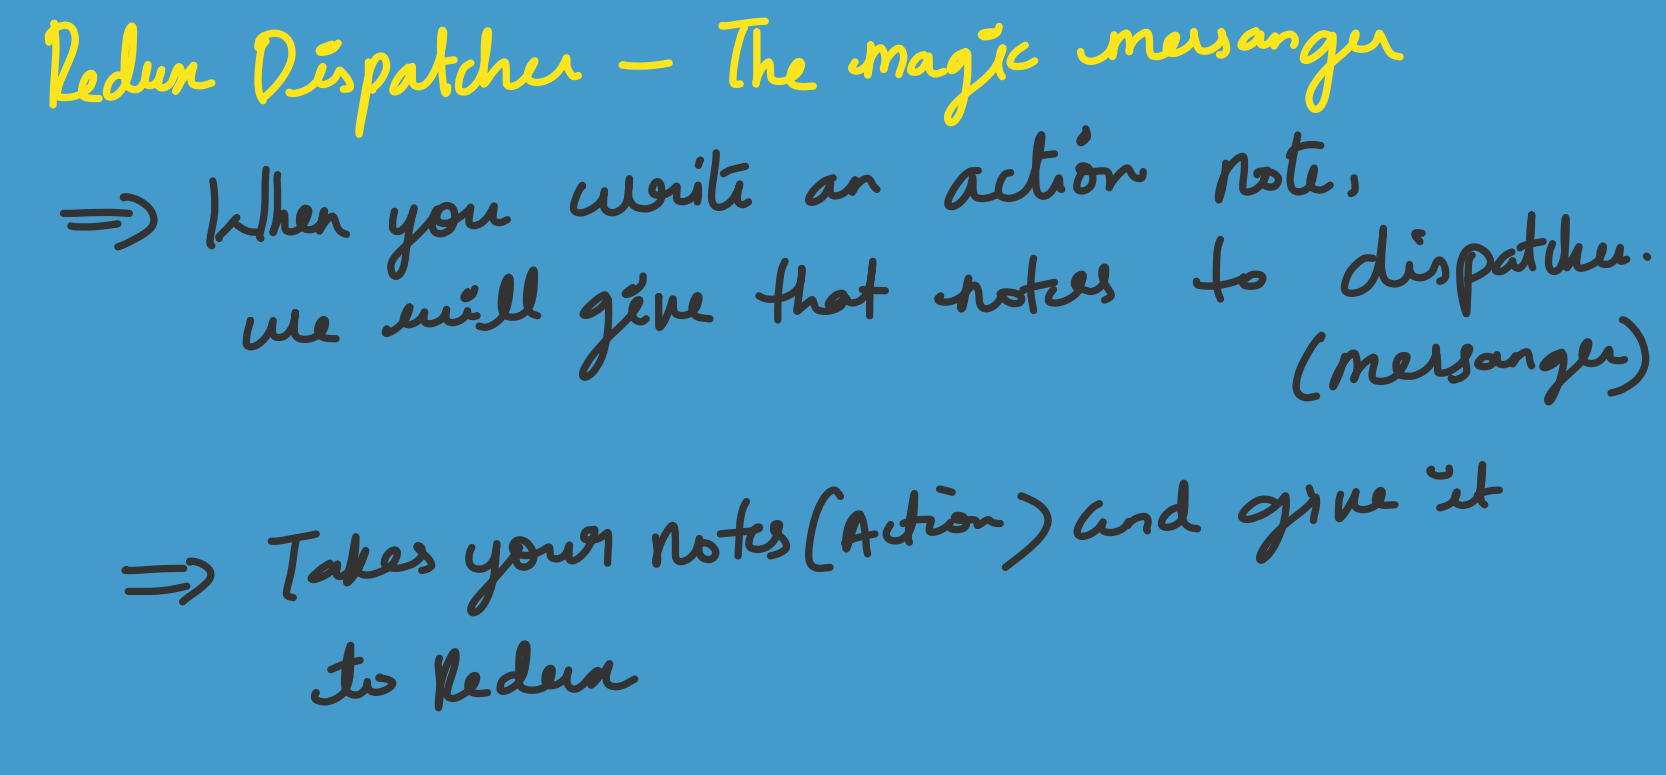 Redux Dispatcher — The magic messanger
⇒ When you write an action note,
we will give that notes to dispatcher.
(messanger)
⇒ Takes your notes (Action) and give it
to Redux